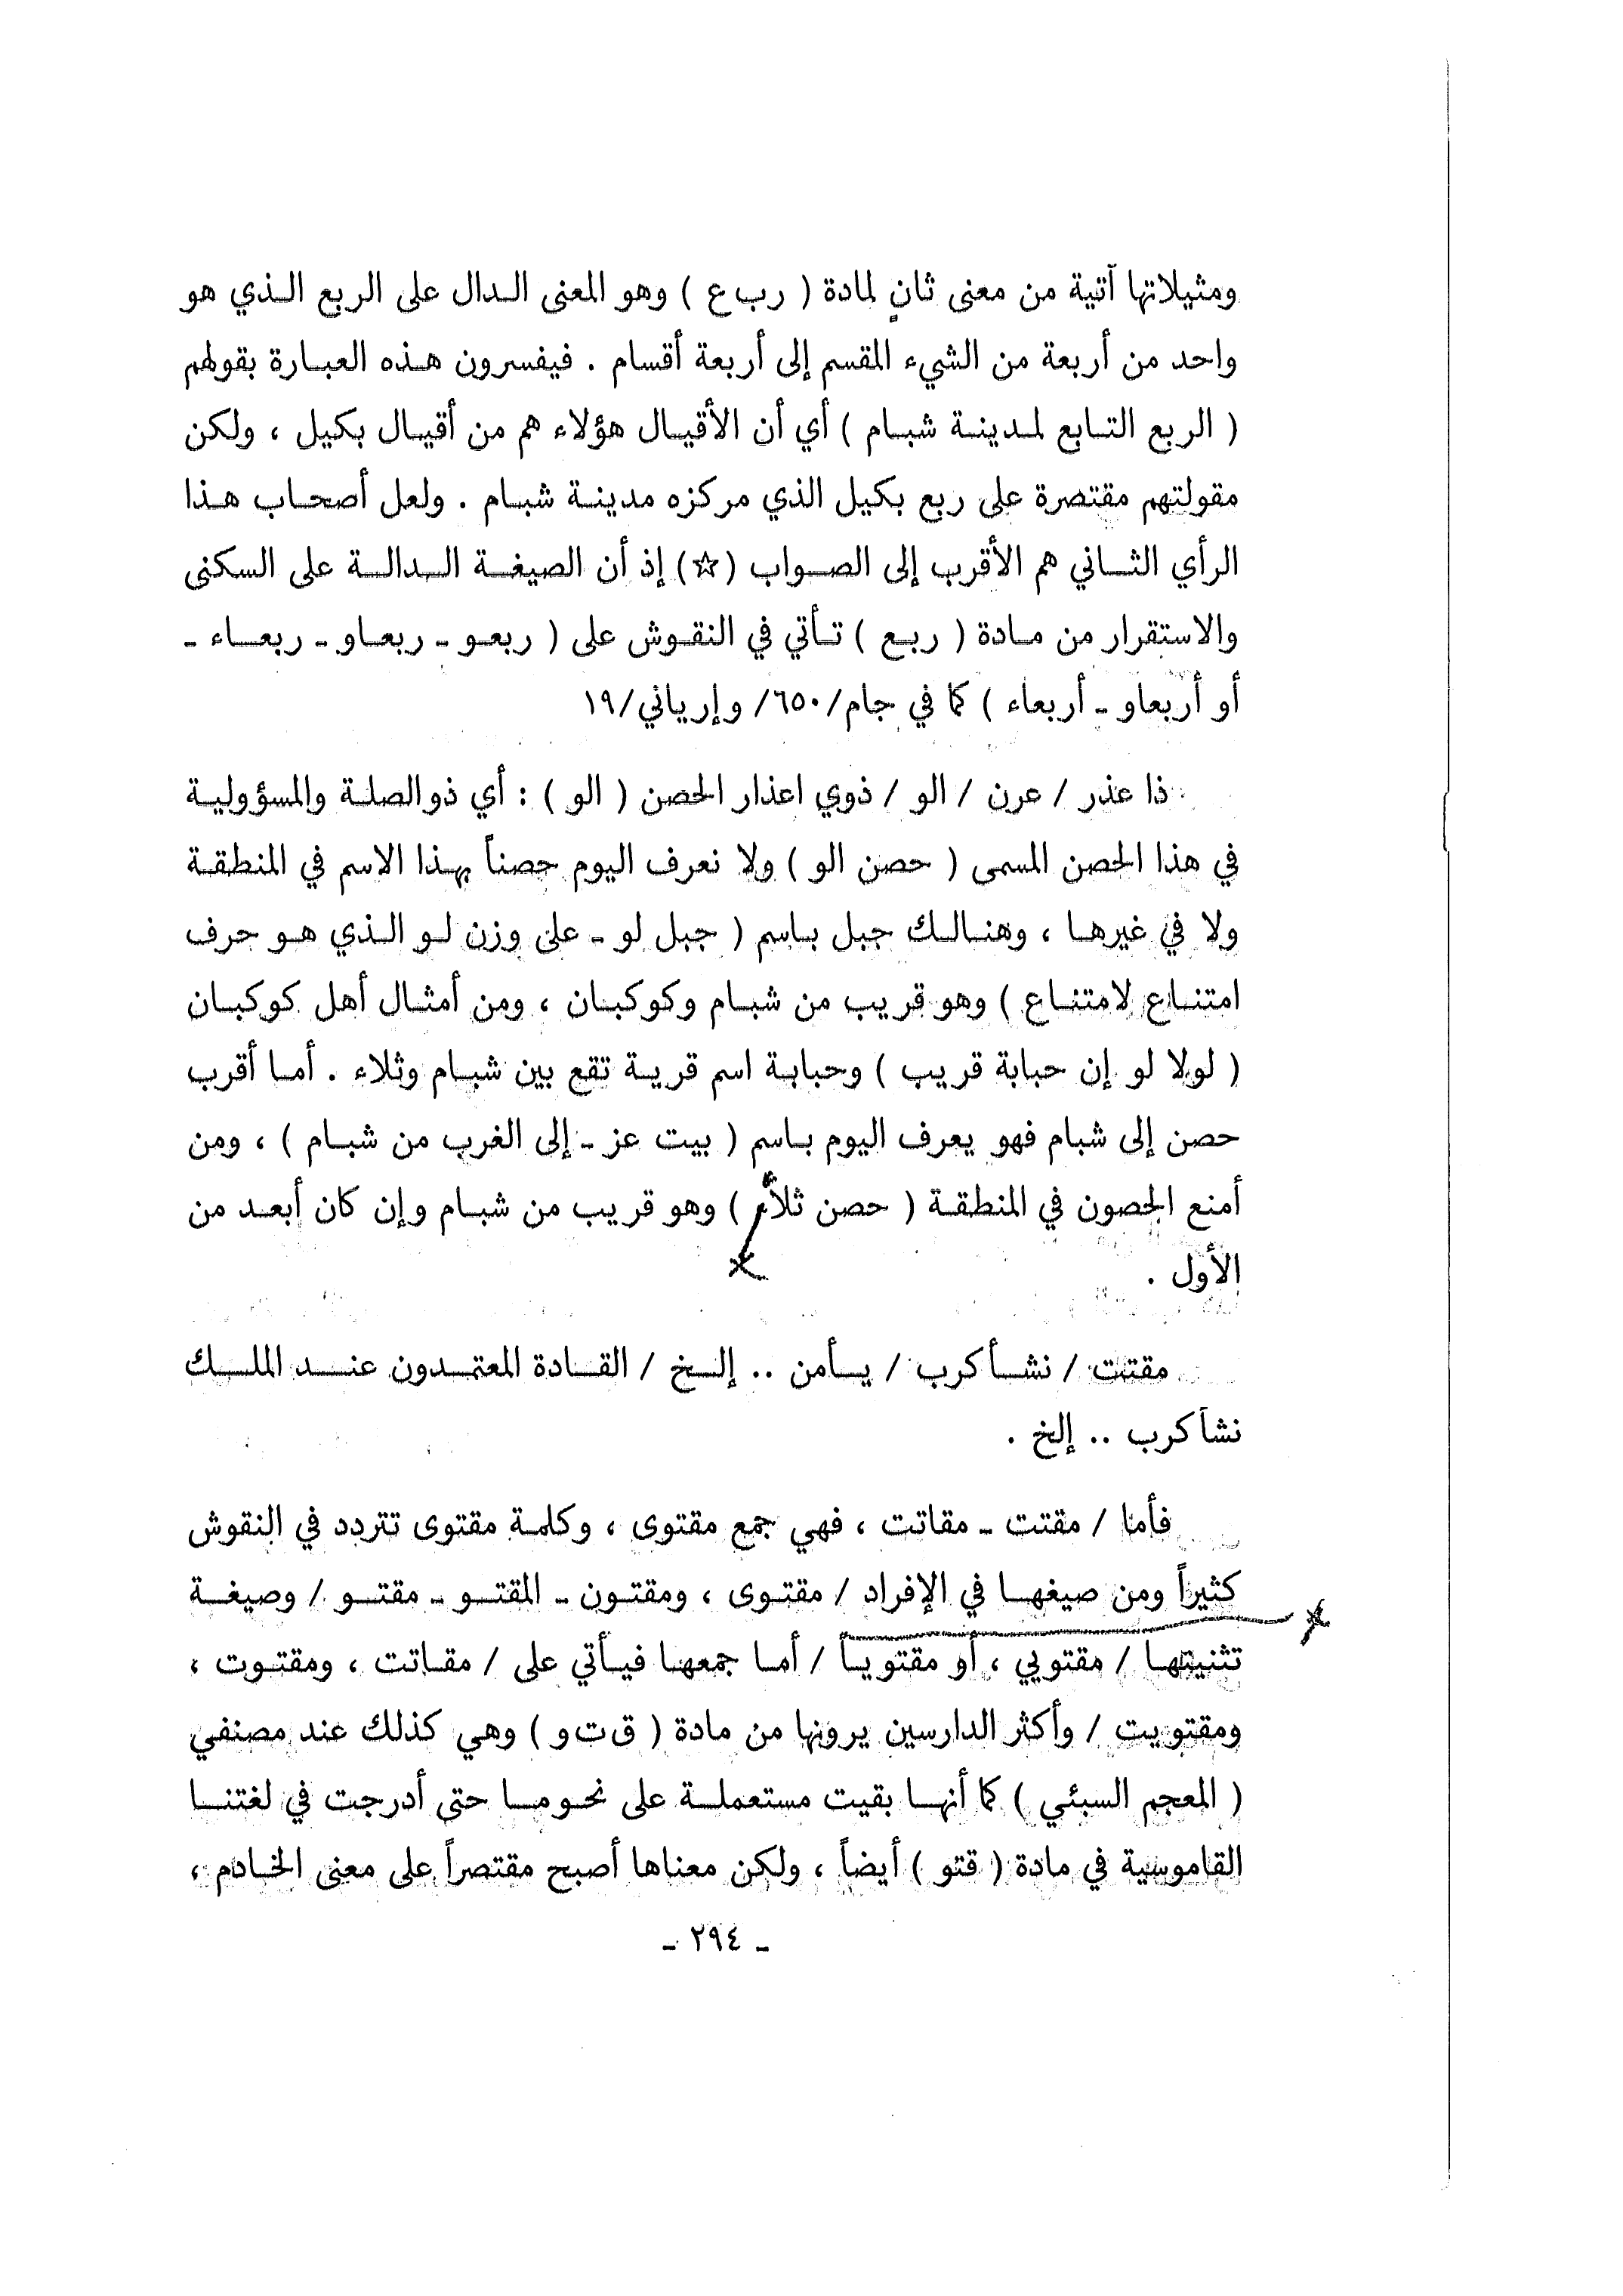 ومثيلاتها آتية من معنى ثانٍ لمادة ( رب ع ) وهو المعنى الدال على الربع الذي هو
واحد من أربعة من الشيء المقسم إلى أربعة أقسام . فيفسرون هذه العبارة بقولهم
( الربع التابع لمدينة شبام ) أي أن الأقيال هؤلاء هم من أقيال بكيل ، ولكن
مقولتهم مقتصرة على ربع بكيل الذي مركزه مدينة شبام . ولعل أصحاب هذا
الرأي الثاني هم الأقرب إلى الصواب (☆) إذ أن الصيغة الدالة على السكنى
والاستقرار من مادة ( ربع ) تأتي في النقوش على ( ربعو ـ ربعاو ـ ربعاء ـ
أو أربعاو ـ أربعاء ) كما في جام/٦٥٠/ وإرياني/١٩
ذا عذر / عرن / الو / ذوي اعذار الحصن ( الو ) : أي ذو الصلة والمسؤولية
في هذا الحصن المسمى ( حصن الو ) ولا نعرف اليوم حصناً بهذا الاسم في المنطقة
ولا في غيرها ، وهنالك جبل باسم ( جبل لو ـ على وزن لو الذي هو حرف
امتناع لامتناع ) وهو قريب من شبام وكوكبان ، ومن أمثال أهل كوكبان
( لولا لو إن حبابة قريب ) وحبابة اسم قرية تقع بين شبام وثلاء . أما أقرب
حصن إلى شبام فهو يعرف اليوم باسم ( بيت عز ـ إلى الغرب من شبام ) ، ومن
أمنع الحصون في المنطقة ( حصن ثلاء ) وهو قريب من شبام وإن كان أبعد من
الأول .
مقتت / نشأكرب / يأمن .. إلخ / القادة المعتمدون عند الملك
نشأكرب .. إلخ .
فأما / مقتت ـ مقاتت ، فهي جمع مقتوى ، وكلمة مقتوى تتردد في النقوش
كثيراً ومن صيغها في الإفراد / مقتوى ، ومقتون ـ المقتو ـ مقتو / وصيغة
تثنيتها / مقتويي ، أو مقتوياً / أما جمعها فيأتي على / مقاتت ، ومقتوت ،
ومقتويت / وأكثر الدارسين يرونها من مادة ( ق ت و ) وهي كذلك عند مصنفي
( المعجم السبئي ) كما أنها بقيت مستعملة على نحو ما حتى أدرجت في لغتنا
القاموسية في مادة ( قتو ) أيضاً ، ولكن معناها أصبح مقتصراً على معنى الخادم ،
ـ ٢٩٤ ـ